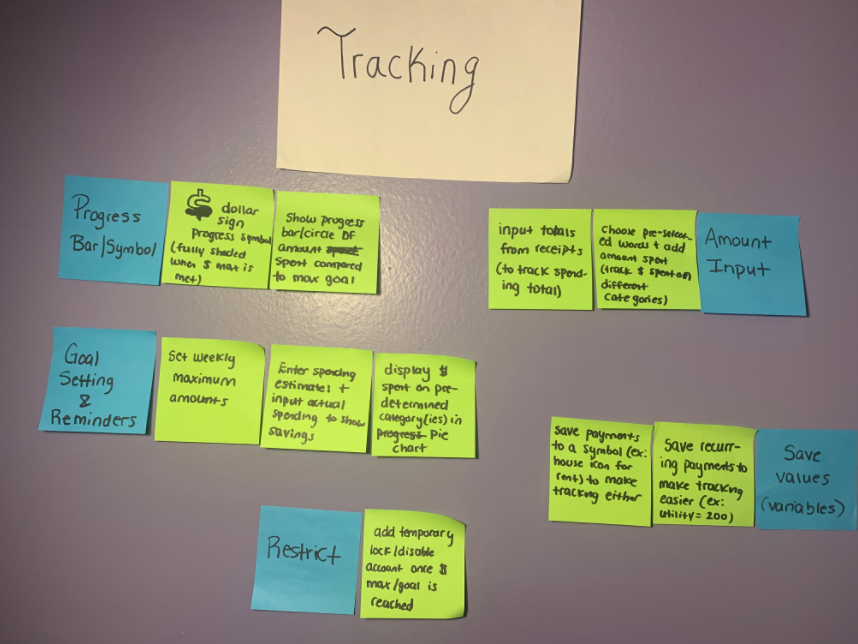 Tracking
Progress
Bar/Symbol
dollar
sign
Progress symbol
(fully shaded
when $ max is
met)
Show progress
bar/circle OF
amount
Spent compared
to max goal
input totals
from receipts
(to track spend-
ing total)
Choose pre-select-
ed words + add
amount spent
(track $ spent on
different
categories)
Amount
Input
Goal
Setting
&
Reminders
Set weekly
maximum
amounts
Enter spending
estimates +
input actual
spending to show
savings
display $
spent on pre-
determined
category(ies) in
progress pie
chart
save payments
to a symbol (ex:
house icon for
rent) to make
tracking either
Save recurr-
ing payments to
make tracking
easier (ex:
utility = 200)
Save
values
(variables)
Restrict
add temporary
lock/disable
account once $
max/goal is
reached